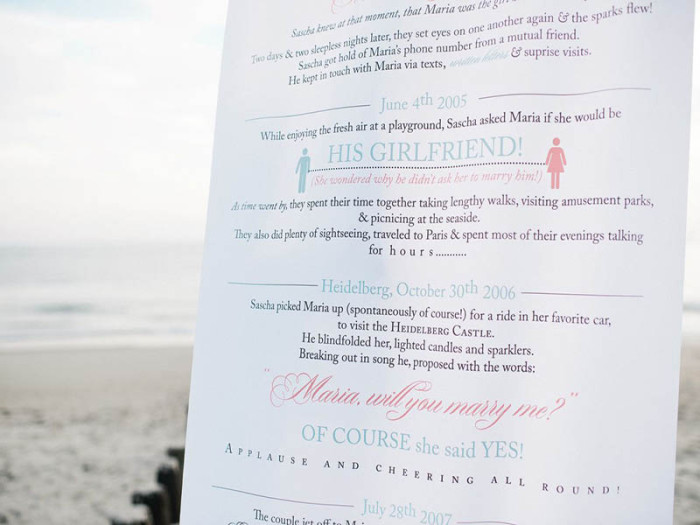 Sascha knew at that moment, that Maria was the
Two days & two sleepless nights later, they set eyes on one another again & the sparks flew!
Sascha got hold of Maria's phone number from a mutual friend.
He kept in touch with Maria via texts, & suprise visits.
June 4th 2005
While enjoying the fresh air at a playground, Sascha asked Maria if she would be
HIS GIRLFRIEND!
(She wondered why he didn't ask her to marry him!)
As time went by, they spent their time together taking lengthy walks, visiting amusement parks,
& picnicing at the seaside.
They also did plenty of sightseeing, traveled to Paris & spent most of their evenings talking
for hours...........
Heidelberg, October 30th 2006
Sascha picked Maria up (spontaneously of course!) for a ride in her favorite car,
to visit the HEIDELBERG CASTLE.
He blindfolded her, lighted candles and sparklers.
Breaking out in song he, proposed with the words:
"Maria, will you marry me?"
OF COURSE she said YES!
APPLAUSE AND CHEERING ALL ROUND!
July 28th 2007
The couple jet off to